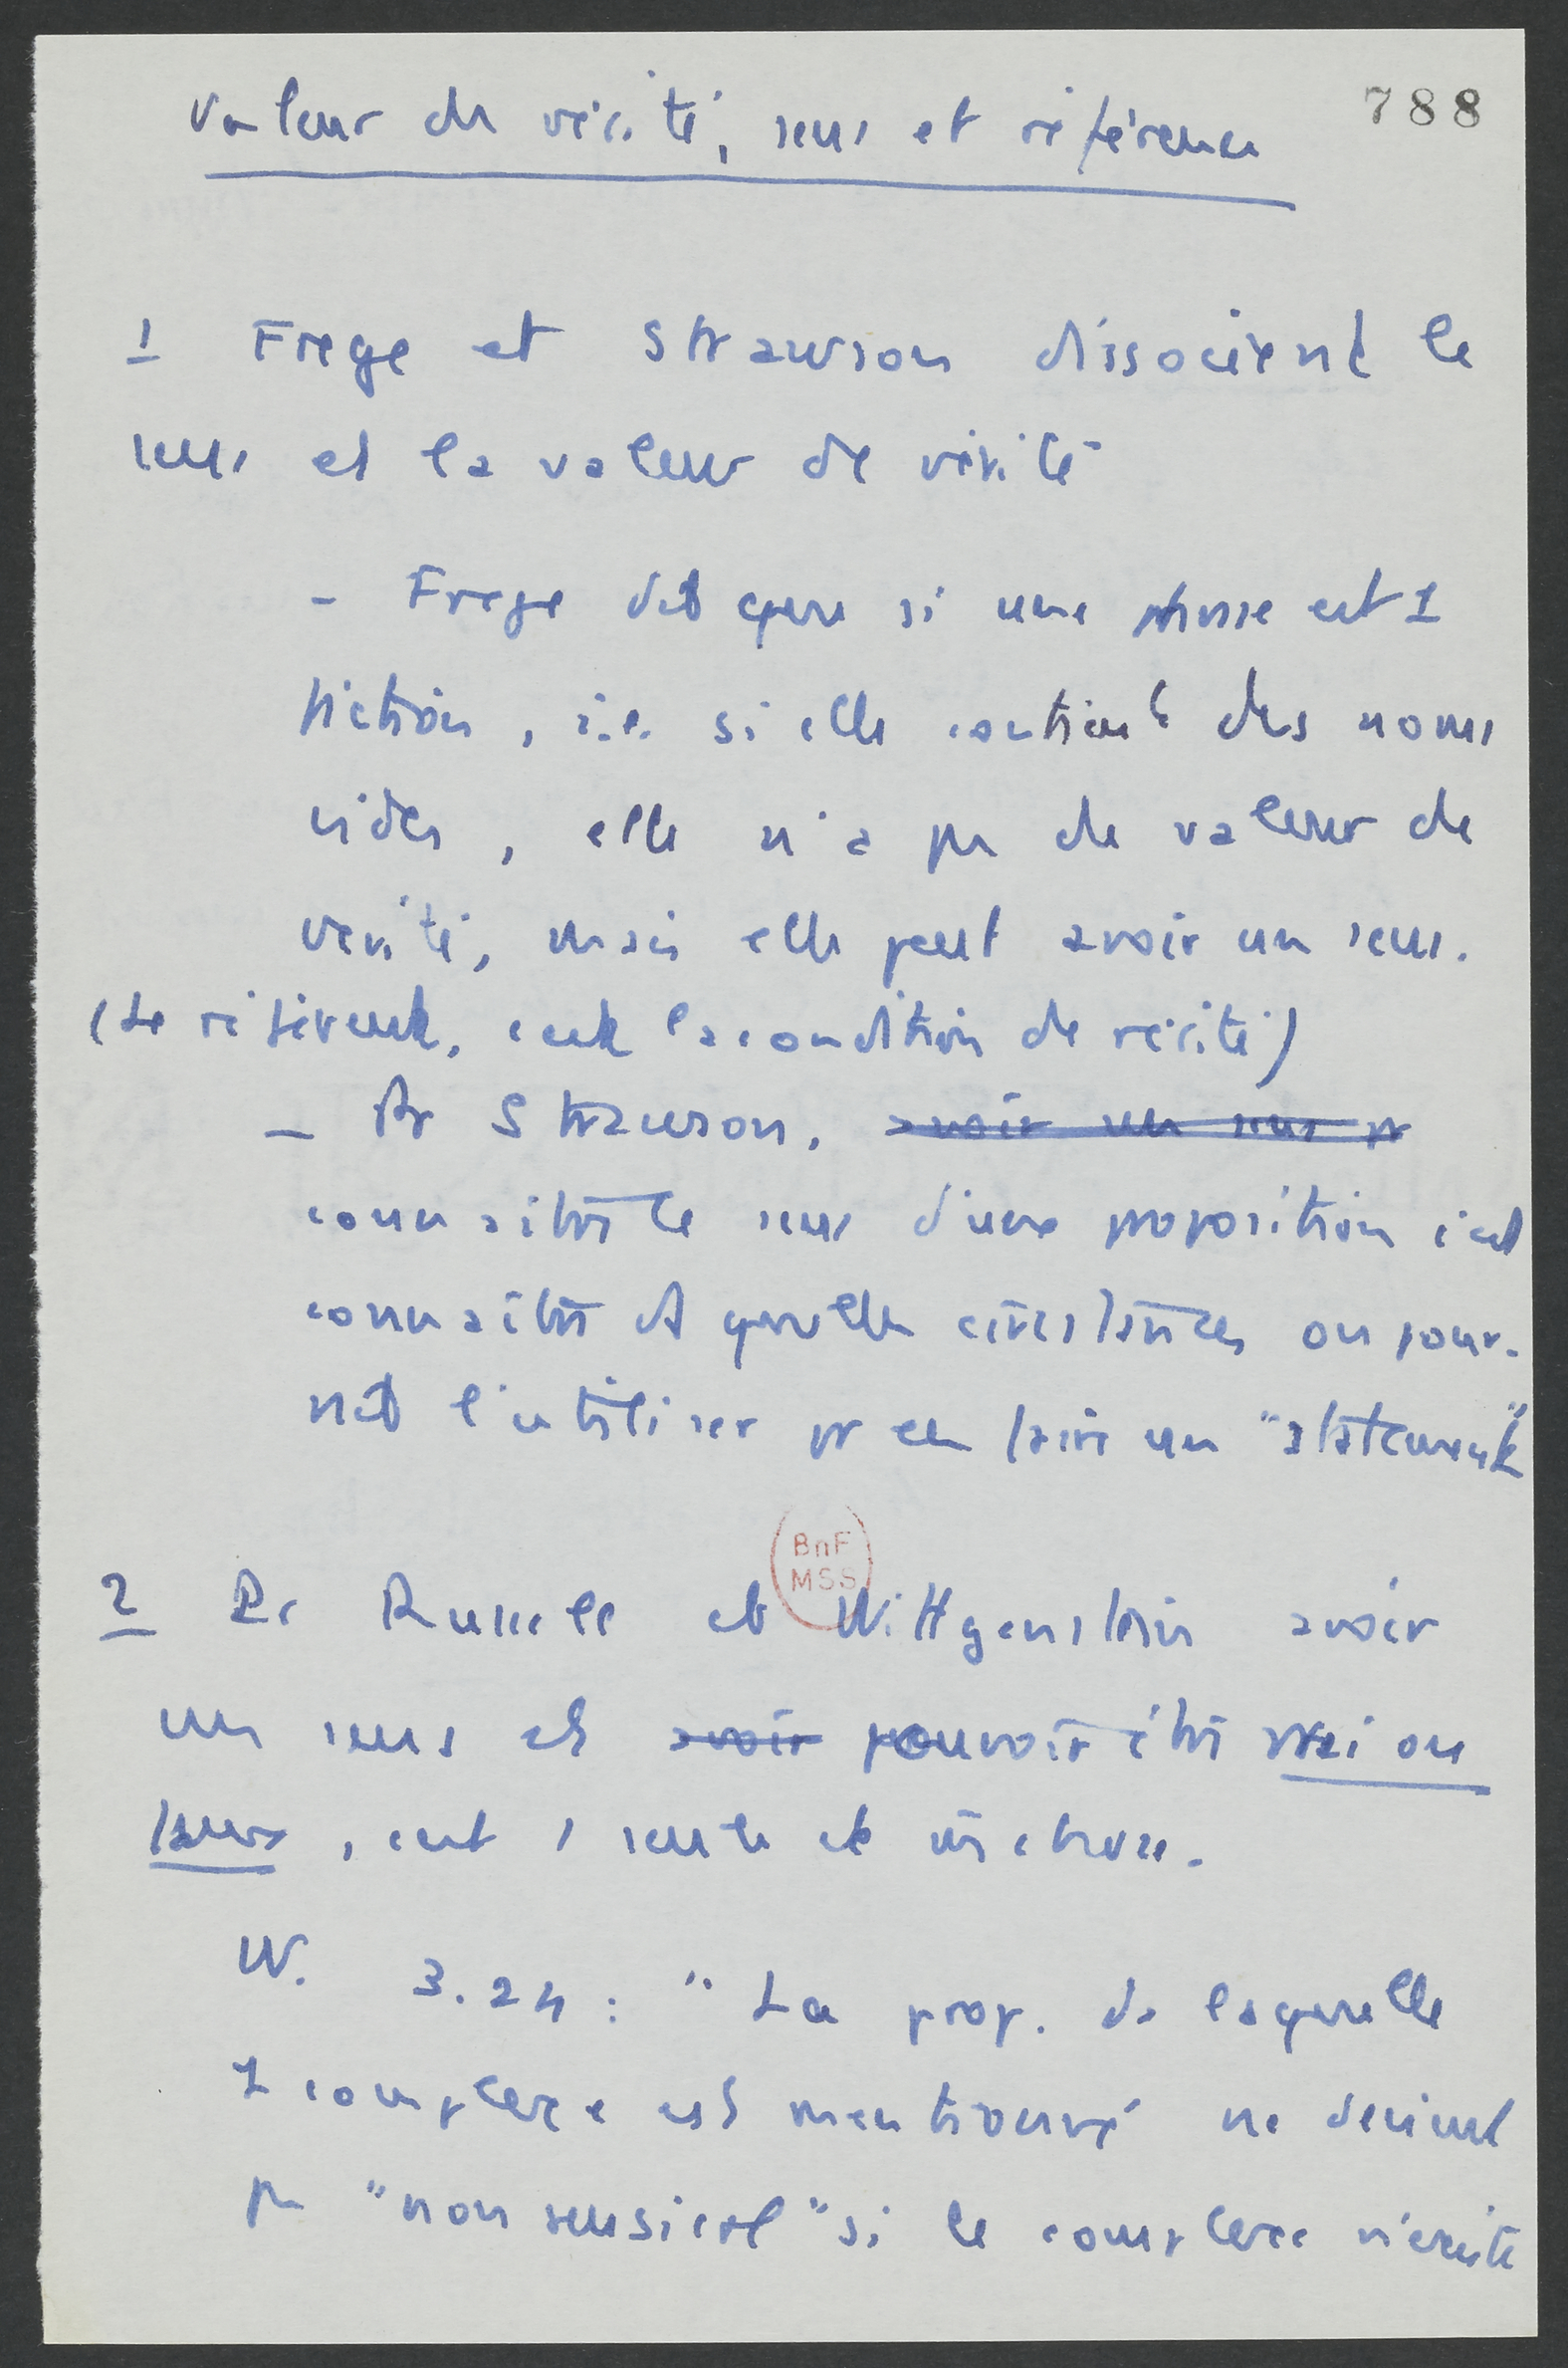 788
Valeur de vérité, sens et référence
1 Frege et Strawson dissocient le
sens et la valeur de vérité
- Frege dit que si une phrase est 1
fiction, i.e. si elle contient des noms
vides, elle n'a pas de valeur de
vérité, mais elle peut avoir un sens.
(Le référent, c'est la condition de vérité)
- Pr Strawson, avoir un sens pr
connaître le sens d'une proposition c'est
connaître ds quelles circstances on pour-
rait l'utiliser pr en faire un "statement"
BnF
MSS
2 Pr Russell et Wittgenstein avoir
un sens et avoir pouvoir être vrai ou
faux, c'est 1 seule et m̄ chose.
W. 3.24 : "La prop. ds laquelle
1 complexe est mentionné ne devient
pas "nonsensical" si le complexe n'existe